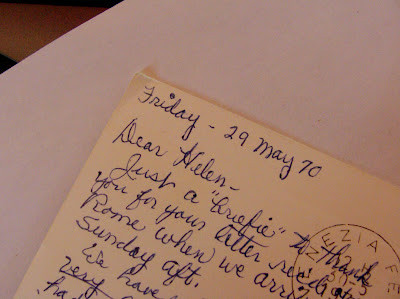 Friday - 29 May 70
Dear Helen -
Just a "briefie" to thank
you for your letter rec'd at
Rome when we arr.
Sunday aft.
We have
very
EZIA FE